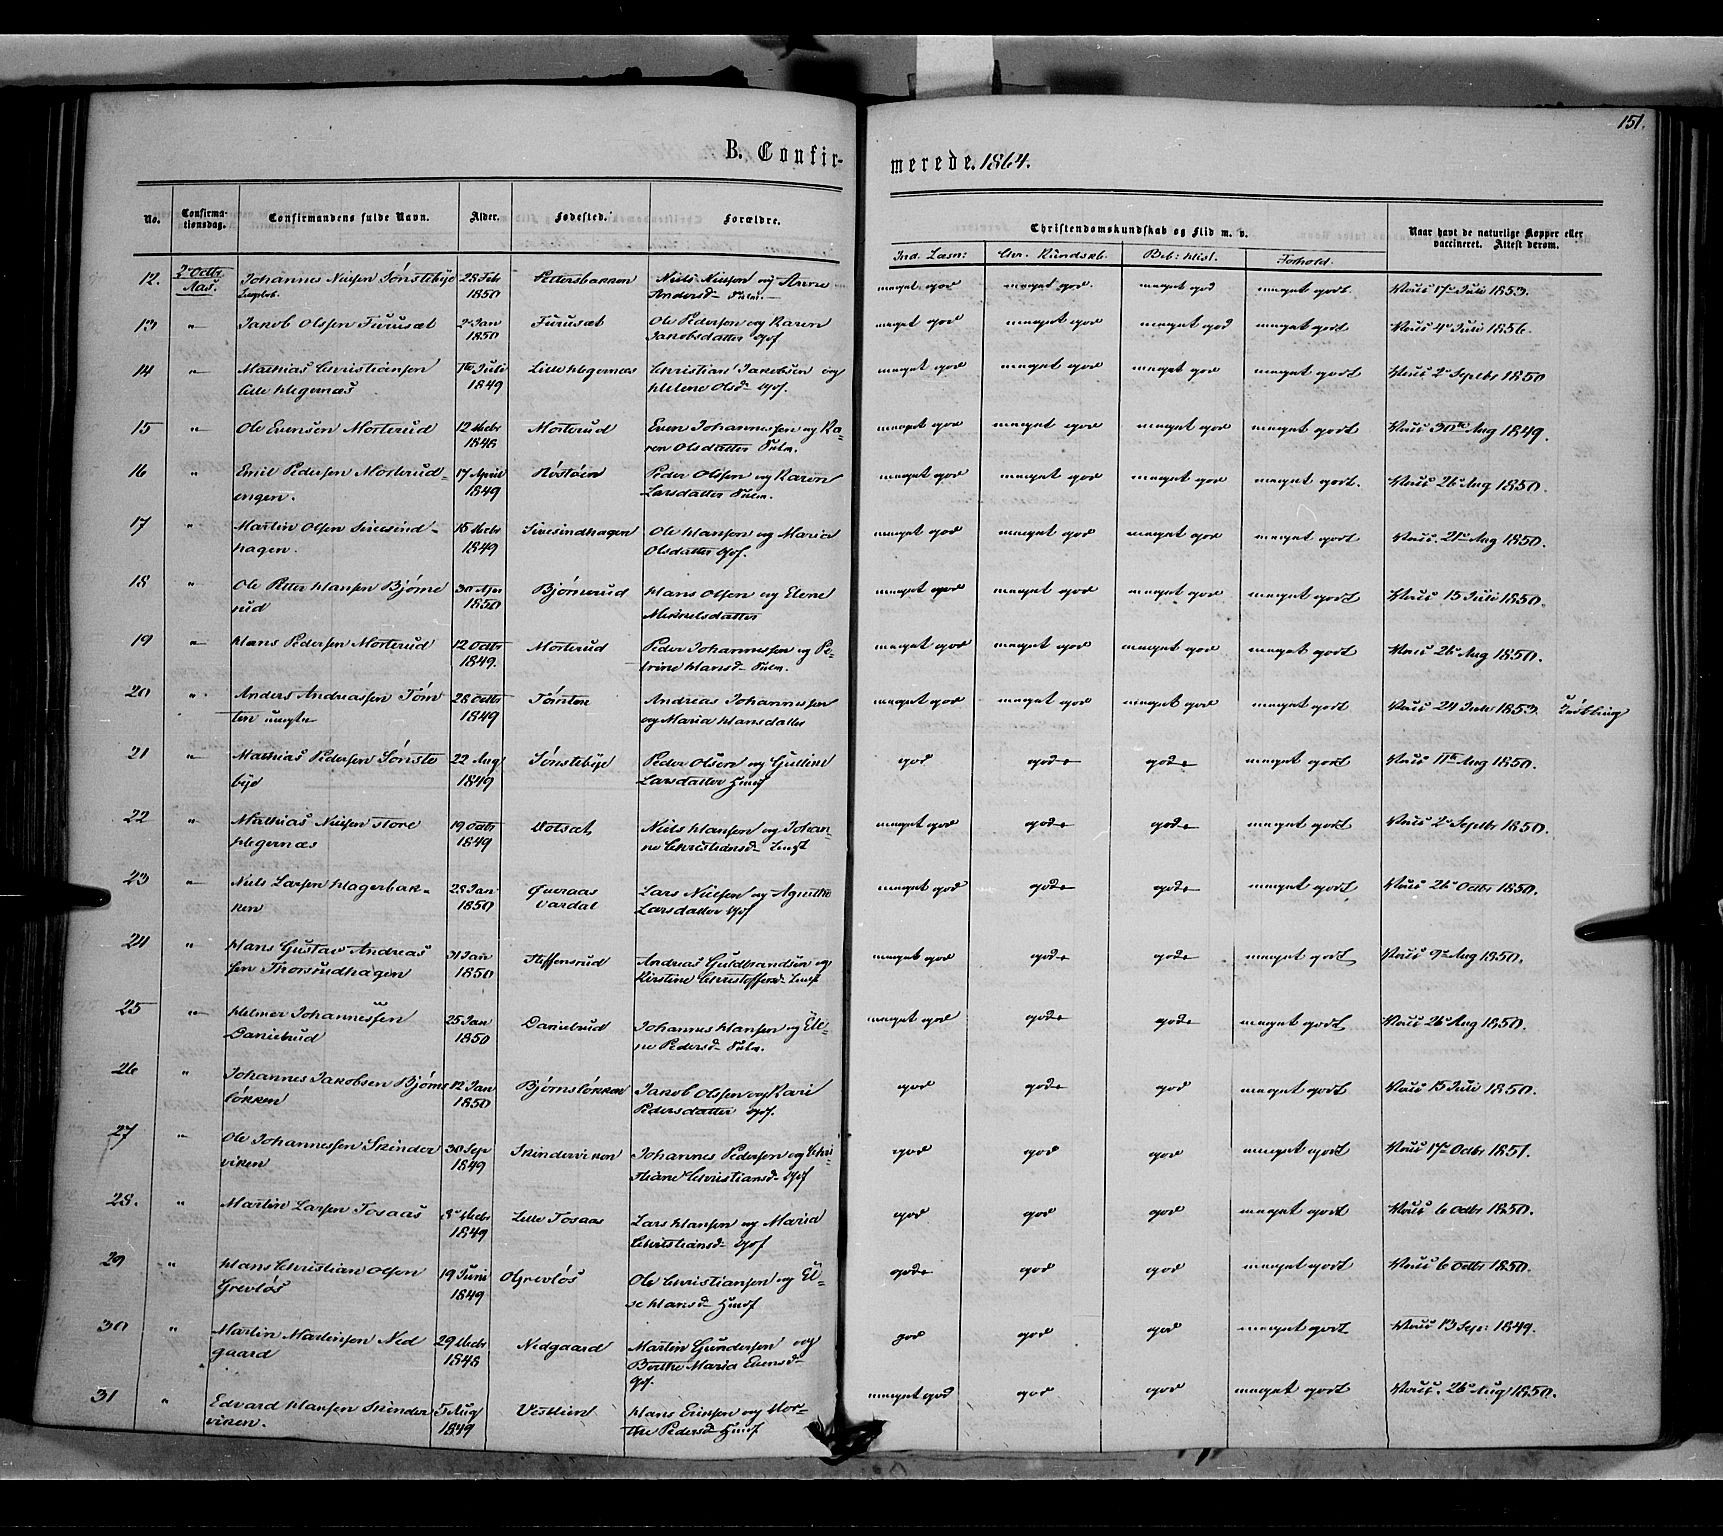 151.
B. Confir-
merede. 1864.
No.
Confirma-
tionsdag.
Confirmandens fulde Navn.
Alder.
Fødested.
Forældre.
Christendomskundskab og Flid m. v.
Naar havt de naturlige Kopper eller
vaccineret. Attest derom.
Ind. Læsn:
Chr. Kundskb.
Bib: Hist.
Forhold.
12.
2 Octbr
Aas.
Johannes Nielsen Sønstebye
28 Feb
1850
Pettersbakken
Niels Nielsen og Anne
Andersd
meget god
meget god
meget god
meget godt
Vaus 17 Juli 1853.
13
"
Jakob Olssen Furusæt
2 Jan
1850
Furusæt
Ole Pedersen og Karen
Jakobsdatter Gjof
meget god
meget god
meget god
meget godt
Vaus 4 Juli 1856.
14
"
Mathias Christiansen
Lille Hegernæs
Juli
1849
Lille Hegernæs
Christian Jakobsen og
Helene Olsd Gjof.
meget god
meget god
meget god
meget godt
Vaus 2 Septbr 1850
15
"
Ole Evensen Morterud
12 Decbr
1848
Morterud
Even Johannessen og Ka-
ren Olsdatter
meget god
meget god
meget god
meget godt
Vaus 30te Aug 1849.
16
"
Emil Pedersen Morterud-
engen.
17 April
1849
Peder Olssen og Karen
Larsdatter
meget god
meget god
meget god
meget godt.
Vaus 26 Aug 1850.
17
"
Martin Olsen Sivesind-
hagen.
15 Decbr
1849
Sivesindhagen
Ole Hansen og Maria
Olsdatter Gjof.
meget god
meget god
meget god
meget godt
Vaus 21 Aug 1850.
18
"
Ole Petter Hansen Bjørne
rud
30 Apr
1850
Bjørnerud
Hans Olsen og Elene
Mikkelsdatter
meget god
meget god
meget god
meget godt
Vaus 15 Juli 1850.
19
"
Hans Pedersen Morterud
12 Octbr
1849.
Morterud
Peder Johannessen og Pe-
trine Hansd
meget god
meget god
meget god
meget godt
Vaus 26 Aug 1850.
20
"
Anders Andreassen Tøm
ten
28 Octbr
1849
Tømten
Andreas Johannessen
og Maria Hansdatter
meget god
meget god
meget god
meget godt
Vaus 24 Juli 1853.
Tvilling
21
"
Mathias Pedersen Sønste
bye
22 Aug
1849
Sønstebye
Peder Olsen og Guline
Larsdatter Huusf
god
gode
gode
meget godt
Vaus 11te Aug 1850.
22
"
Mathias Nielsen store
Hegernæs
19 Octbr
1849
Niels Hansen og Johan-
ne Christiansd
meget god
gode
gode
meget godt
Vaus 2 Septbr 1850.
23
"
Niels Larsen Hagerbak-
ken
28 Jan
1850
Øveraas
Vardal
Lars Nielsen og Agnethe
Larsdatter Gjof
meget god
gode
gode
meget godt
Vaus 26 Octbr 1850.
24
"
Hans Gustav Andreas
sen Thorsrudhagen
31 Jan
1850
Steffensrud
Andreas Guldbrandsen og
Kirstine Christoffersd
meget god
gode
gode
meget godt
Vaus 9 Aug 1850.
25
"
Helmer Johannessen
Danielrud
25 Jan
1850
Danielrud
Johannes Hansen og Ele-
ne Pedersd
meget god
gode
gode
meget godt
Vaus 26 Aug 1850.
26
"
Johannes Jakobsen Bjørns
løkken
12 Jan
1850
Bjørnsløkken
Jakob Olssen og Kari
Pedersdatter Gjof.
god
gode
god
meget godt
Vaus 15 Juli 1850.
27
"
Ole Johannessen Skinder
viken
30 Sep
1849
Skinderviken
Johannes Pedersen og Chri
stiane Christiansd Gjof
god
god
god
meget godt
Vaus 17 Octbr 1851.
28.
"
Martin Larsen Tosaas
8 Decbr
1849
Lille Tosaas
Lars Hansen og Maria
Christiansd Gjof
god
god
god
meget godt
Vaus 6 Octbr 1850.
29
"
Hans Christian Olsen
Grevløs
19 Juni
1849
Grevløs
Ole Christiansen og El-
se Hansd Huusf
gode
god
god
meget godt
Vaus 6 Octbr 1850.
30
"
Martin Martinsen Ned
gaard
29 Decbr
1848
Nedgaard
Martin Gundersen og
Berthe Maria Evensd
Gjof.
god
god
god
meget godt
Vaus 13 Sep: 1849.
31
"
Edvard Hansen Skinder
viken.
5 Aug
1849
Vestlien
Hans Eriksen og Mar-
the Pedersd Huusf
meget god
god
god
meget godt
Vaus. 26 Aug 1850.